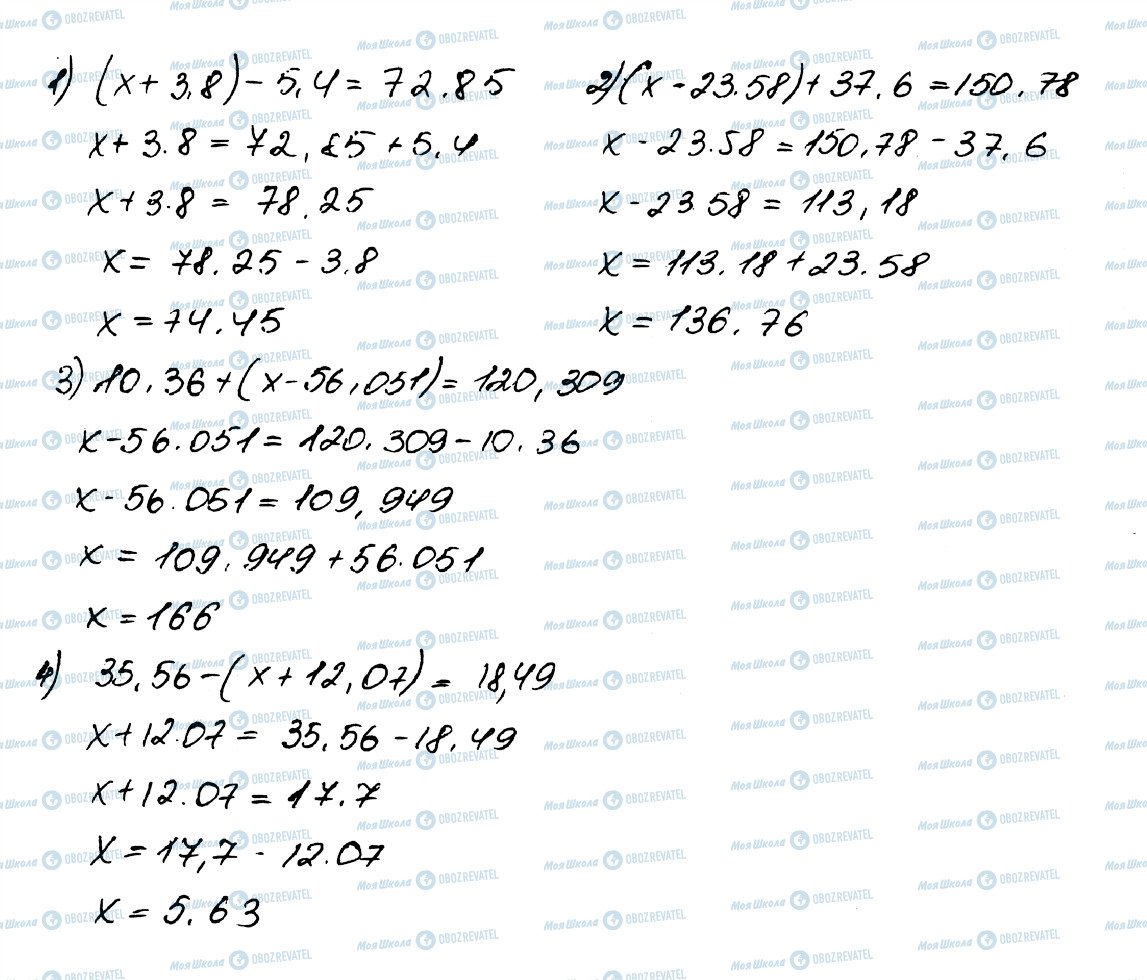 1) (x + 3,8) - 5,4 = 72.85
x + 3.8 = 72,85 + 5,4
x + 3.8 = 78.25
x = 78.25 - 3.8
x = 74.45
2) (x - 23.58) + 37.6 = 150.78
x - 23.58 = 150,78 - 37.6
x - 23.58 = 113,18
x = 113.18 + 23.58
x = 136.76
3) 10.36 + (x - 56,051) = 120,309
x - 56.051 = 120.309 - 10.36
x - 56.051 = 109,949
x = 109.949 + 56.051
x = 166
4) 35,56 - (x + 12,07) = 18,49
x + 12.07 = 35,56 - 18,49
x + 12.07 = 17.7
x = 17,7 - 12.07
x = 5.63
Моя Школа OBOZREVATEL